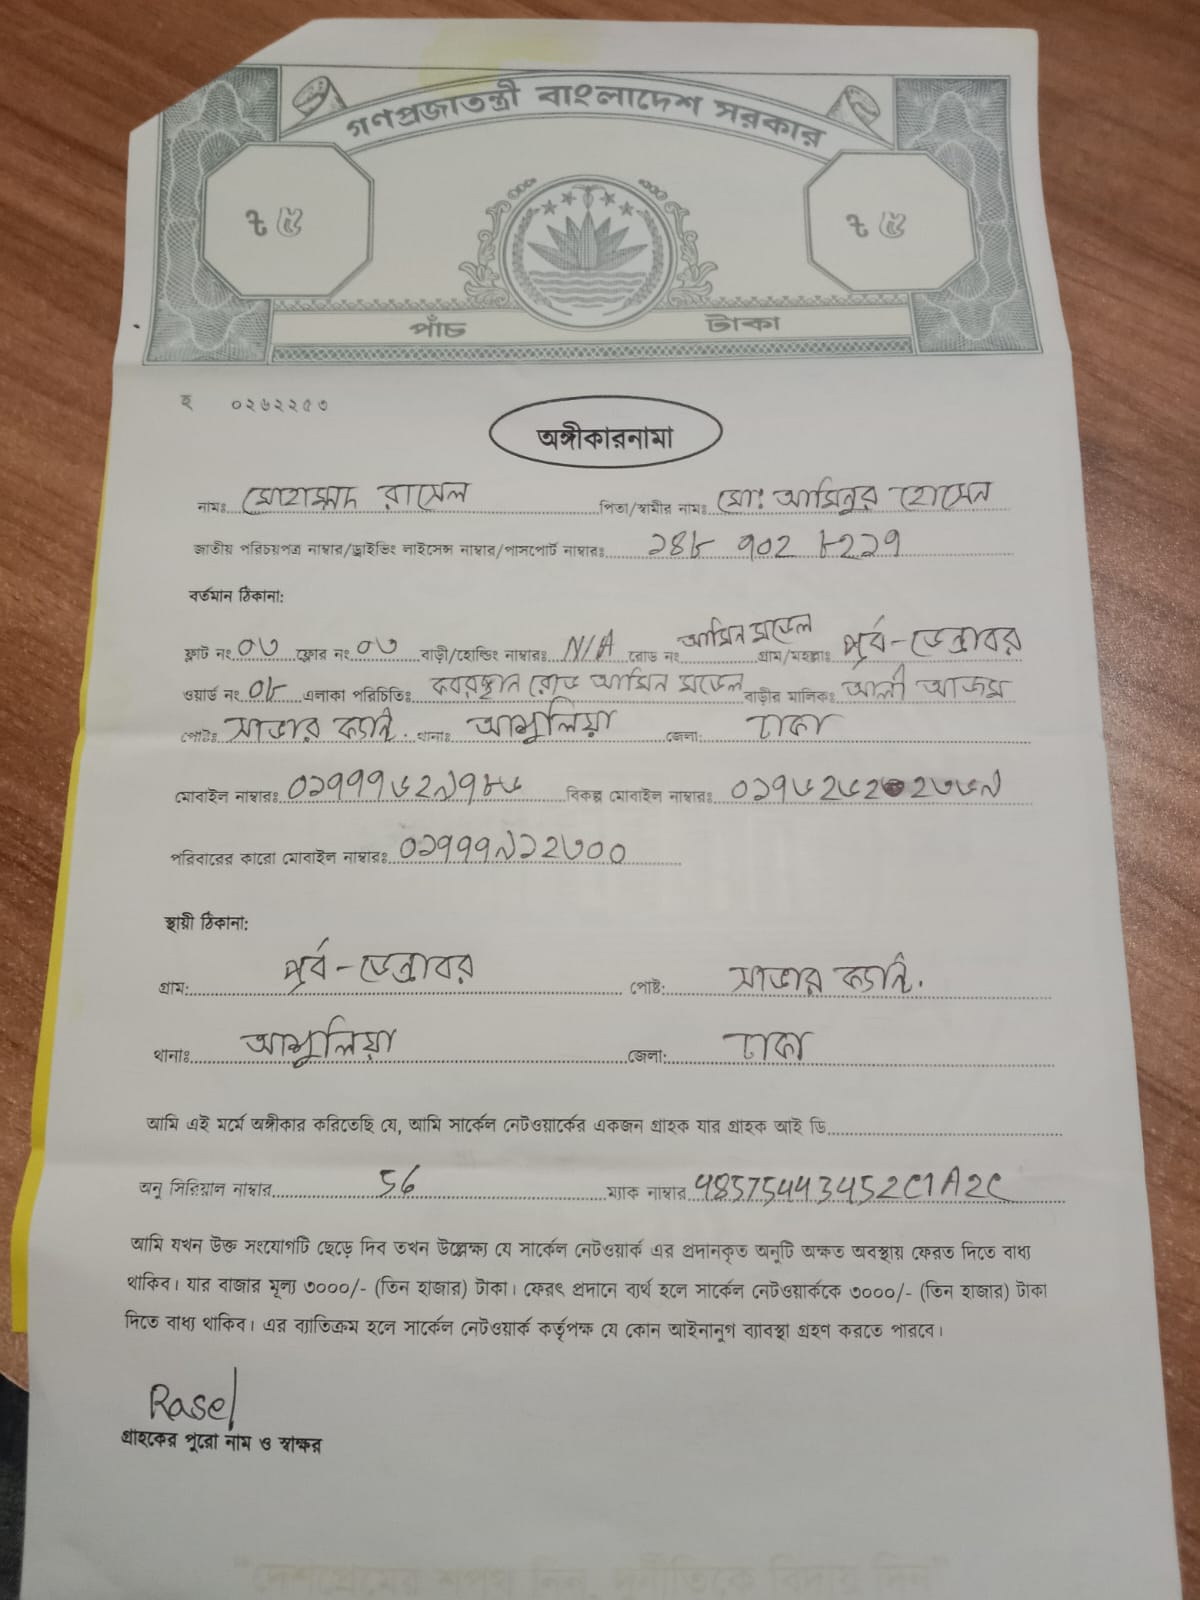 গণপ্রজাতন্ত্রী বাংলাদেশ সরকার
৳ ৫ ৳ ৫
পাঁচ টাকা
হ ০২৬২২৫৩
অঙ্গীকারনামা
নামঃ মোহাম্মদ রাসেল পিতা/স্বামীর নামঃ মোঃ আমিনুর হোসেন
জাতীয় পরিচয়পত্র নাম্বার/ড্রাইভিং লাইসেন্স নাম্বার/পাসপোর্ট নাম্বারঃ ১৪৮ ৭০২ ৮২১৭
বর্তমান ঠিকানা:
ফ্লাট নং ০৩ ফ্লোর নং ০৩ বাড়ী/হোল্ডিং নাম্বারঃ N/A রোড নং আমিন মডেল গ্রাম/মহল্লাঃ পূর্ব-ডেন্ডাবর
ওয়ার্ড নং ০৮ এলাকা পরিচিতিঃ কবরস্থান রোড আমিন মডেল বাড়ীর মালিকঃ আলী আজম
পোষ্টঃ সাভার ক্যান্ট. থানাঃ আশুলিয়া জেলা: ঢাকা
মোবাইল নাম্বারঃ ০১৭৭৭৬২৯৭৮৬ বিকল্প মোবাইল নাম্বারঃ
পরিবারের কারো মোবাইল নাম্বারঃ ০১৭৭৭৯১২৩০০
স্থায়ী ঠিকানা:
গ্রাম: পূর্ব-ডেন্ডাবর পোষ্ট: সাভার ক্যান্ট.
থানাঃ আশুলিয়া জেলা: ঢাকা
আমি এই মর্মে অঙ্গীকার করিতেছি যে, আমি সার্কেল নেটওয়ার্কের একজন গ্রাহক যার গ্রাহক আই ডি
অনু সিরিয়াল নাম্বার 56 ম্যাক নাম্বার 48575443452C1A2C
আমি যখন উক্ত সংযোগটি ছেড়ে দিব তখন উল্লেক্ষ্য যে সার্কেল নেটওয়ার্ক এর প্রদানকৃত অনুটি অক্ষত অবস্থায় ফেরত দিতে বাধ্য
থাকিব। যার বাজার মূল্য ৩০০০/- (তিন হাজার) টাকা। ফেরৎ প্রদানে ব্যর্থ হলে সার্কেল নেটওয়ার্ককে ৩০০০/- (তিন হাজার) টাকা
দিতে বাধ্য থাকিব। এর ব্যাতিক্রম হলে সার্কেল নেটওয়ার্ক কর্তৃপক্ষ যে কোন আইনানুগ ব্যাবস্থা গ্রহণ করতে পারবে।
Rasel
গ্রাহকের পুরো নাম ও স্বাক্ষর
"দেশপ্রেমের শপথ নিন, দুর্নীতিকে বিদায় দিন"